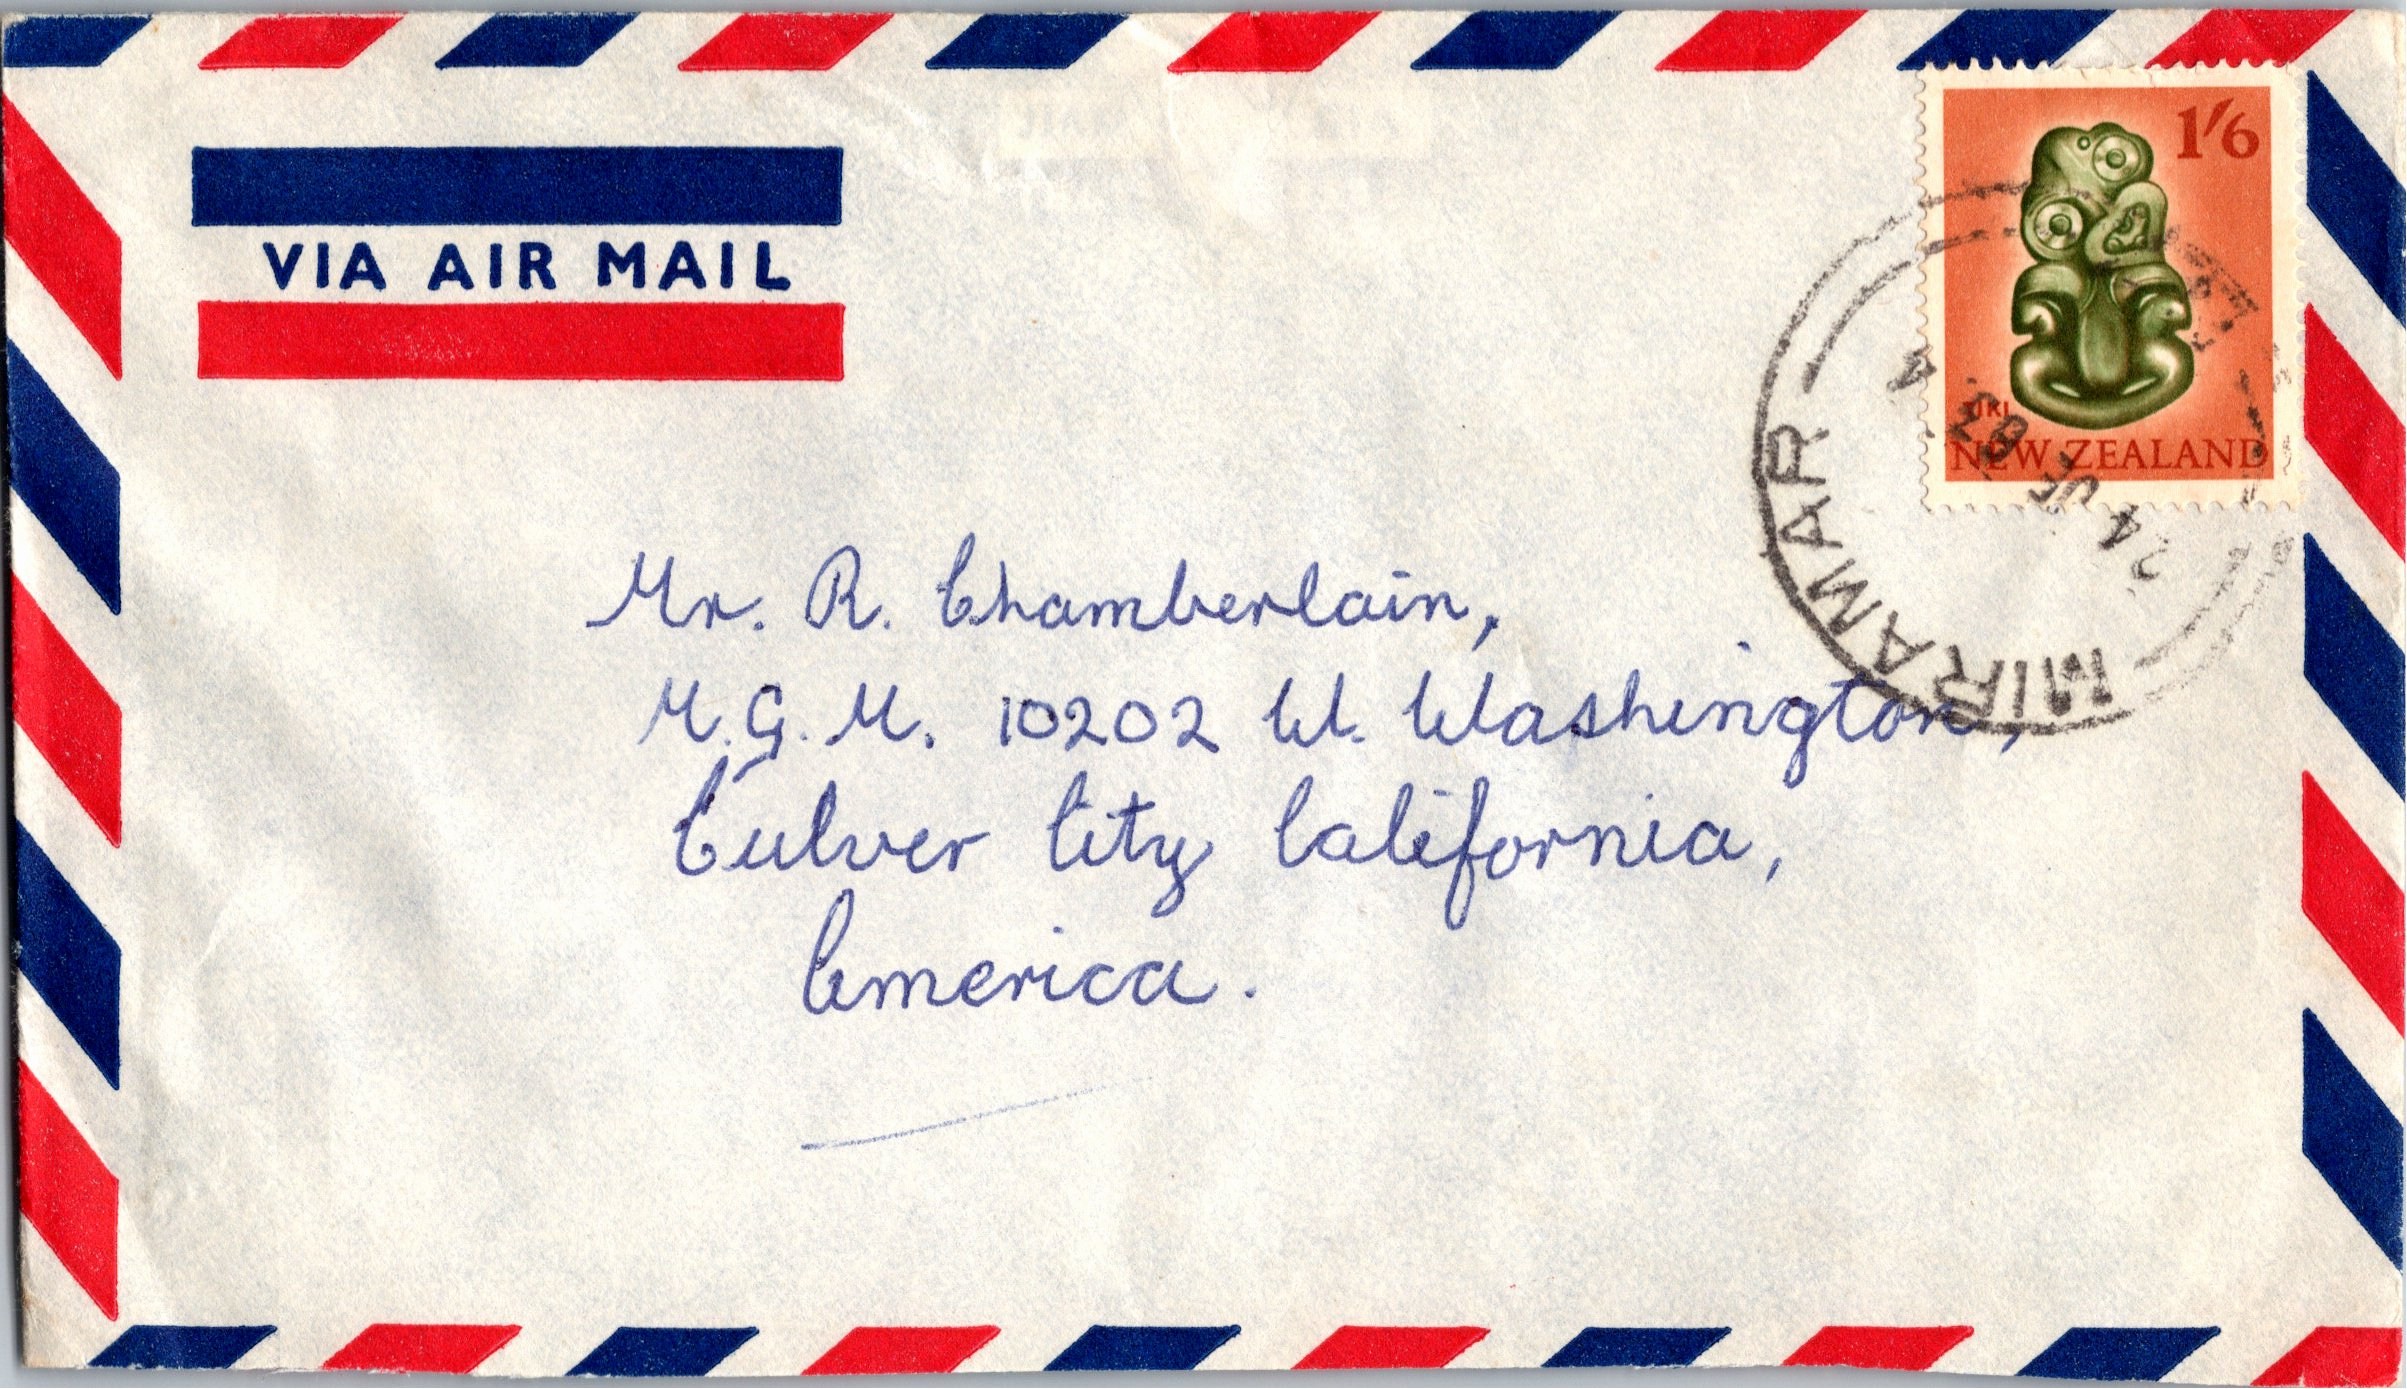 VIA AIR MAIL
1/6
TIKI
NEW ZEALAND
MIRAMAR
24 JE 63
Mr. R. Chamberlain,
M.G.M. 10202 W. Washington,
Culver City California,
America.